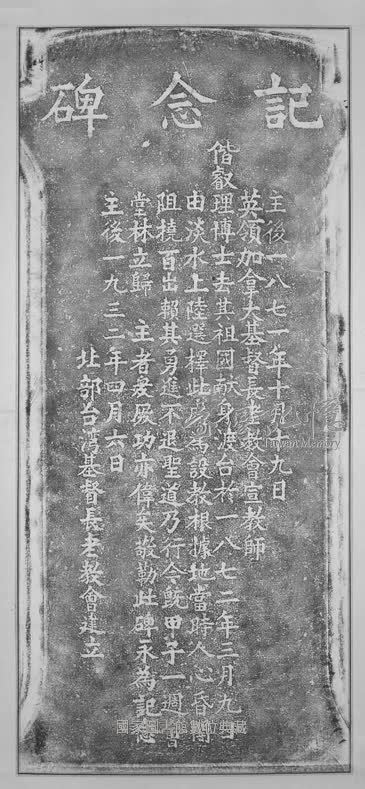 記念碑
主後一八七一年十月十九日
英領加拿大基督長老教會宣教師
偕叡理博士去其祖國献身渡台於一八七二年三月九日
由淡水上陸選擇此 為設教根據地當時人心昏
阻撓百出賴其勇進不退聖道乃行今既甲子一週會
堂林立歸 主者衆厥功亦偉矣敬勒此碑永為記念
主後一九三二年四月六日
北部台灣基督長老教會建立
Taiwan Memory
國家圖書館數位典藏